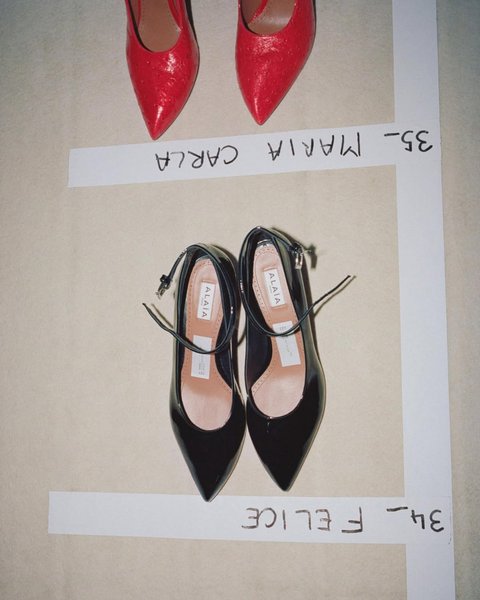 35_ MARIA CARLA
ALAÏA
ALAÏA
34_ FELICE